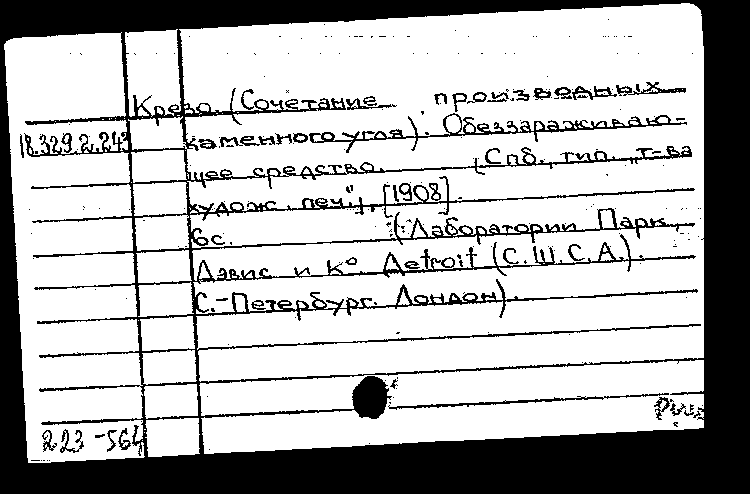 Крезо. (Сочетание производных
18.329.2.243 каменного угля). Обеззараживаю-
щее средство. (Спб., тип. „Т-ва
худож. печ."), [1908].
6с. (Лаборатории Парк,
Дэвис и К°. Детroit (С.Ш.С.А.).
С.-Петербург. Лондон).
223-564